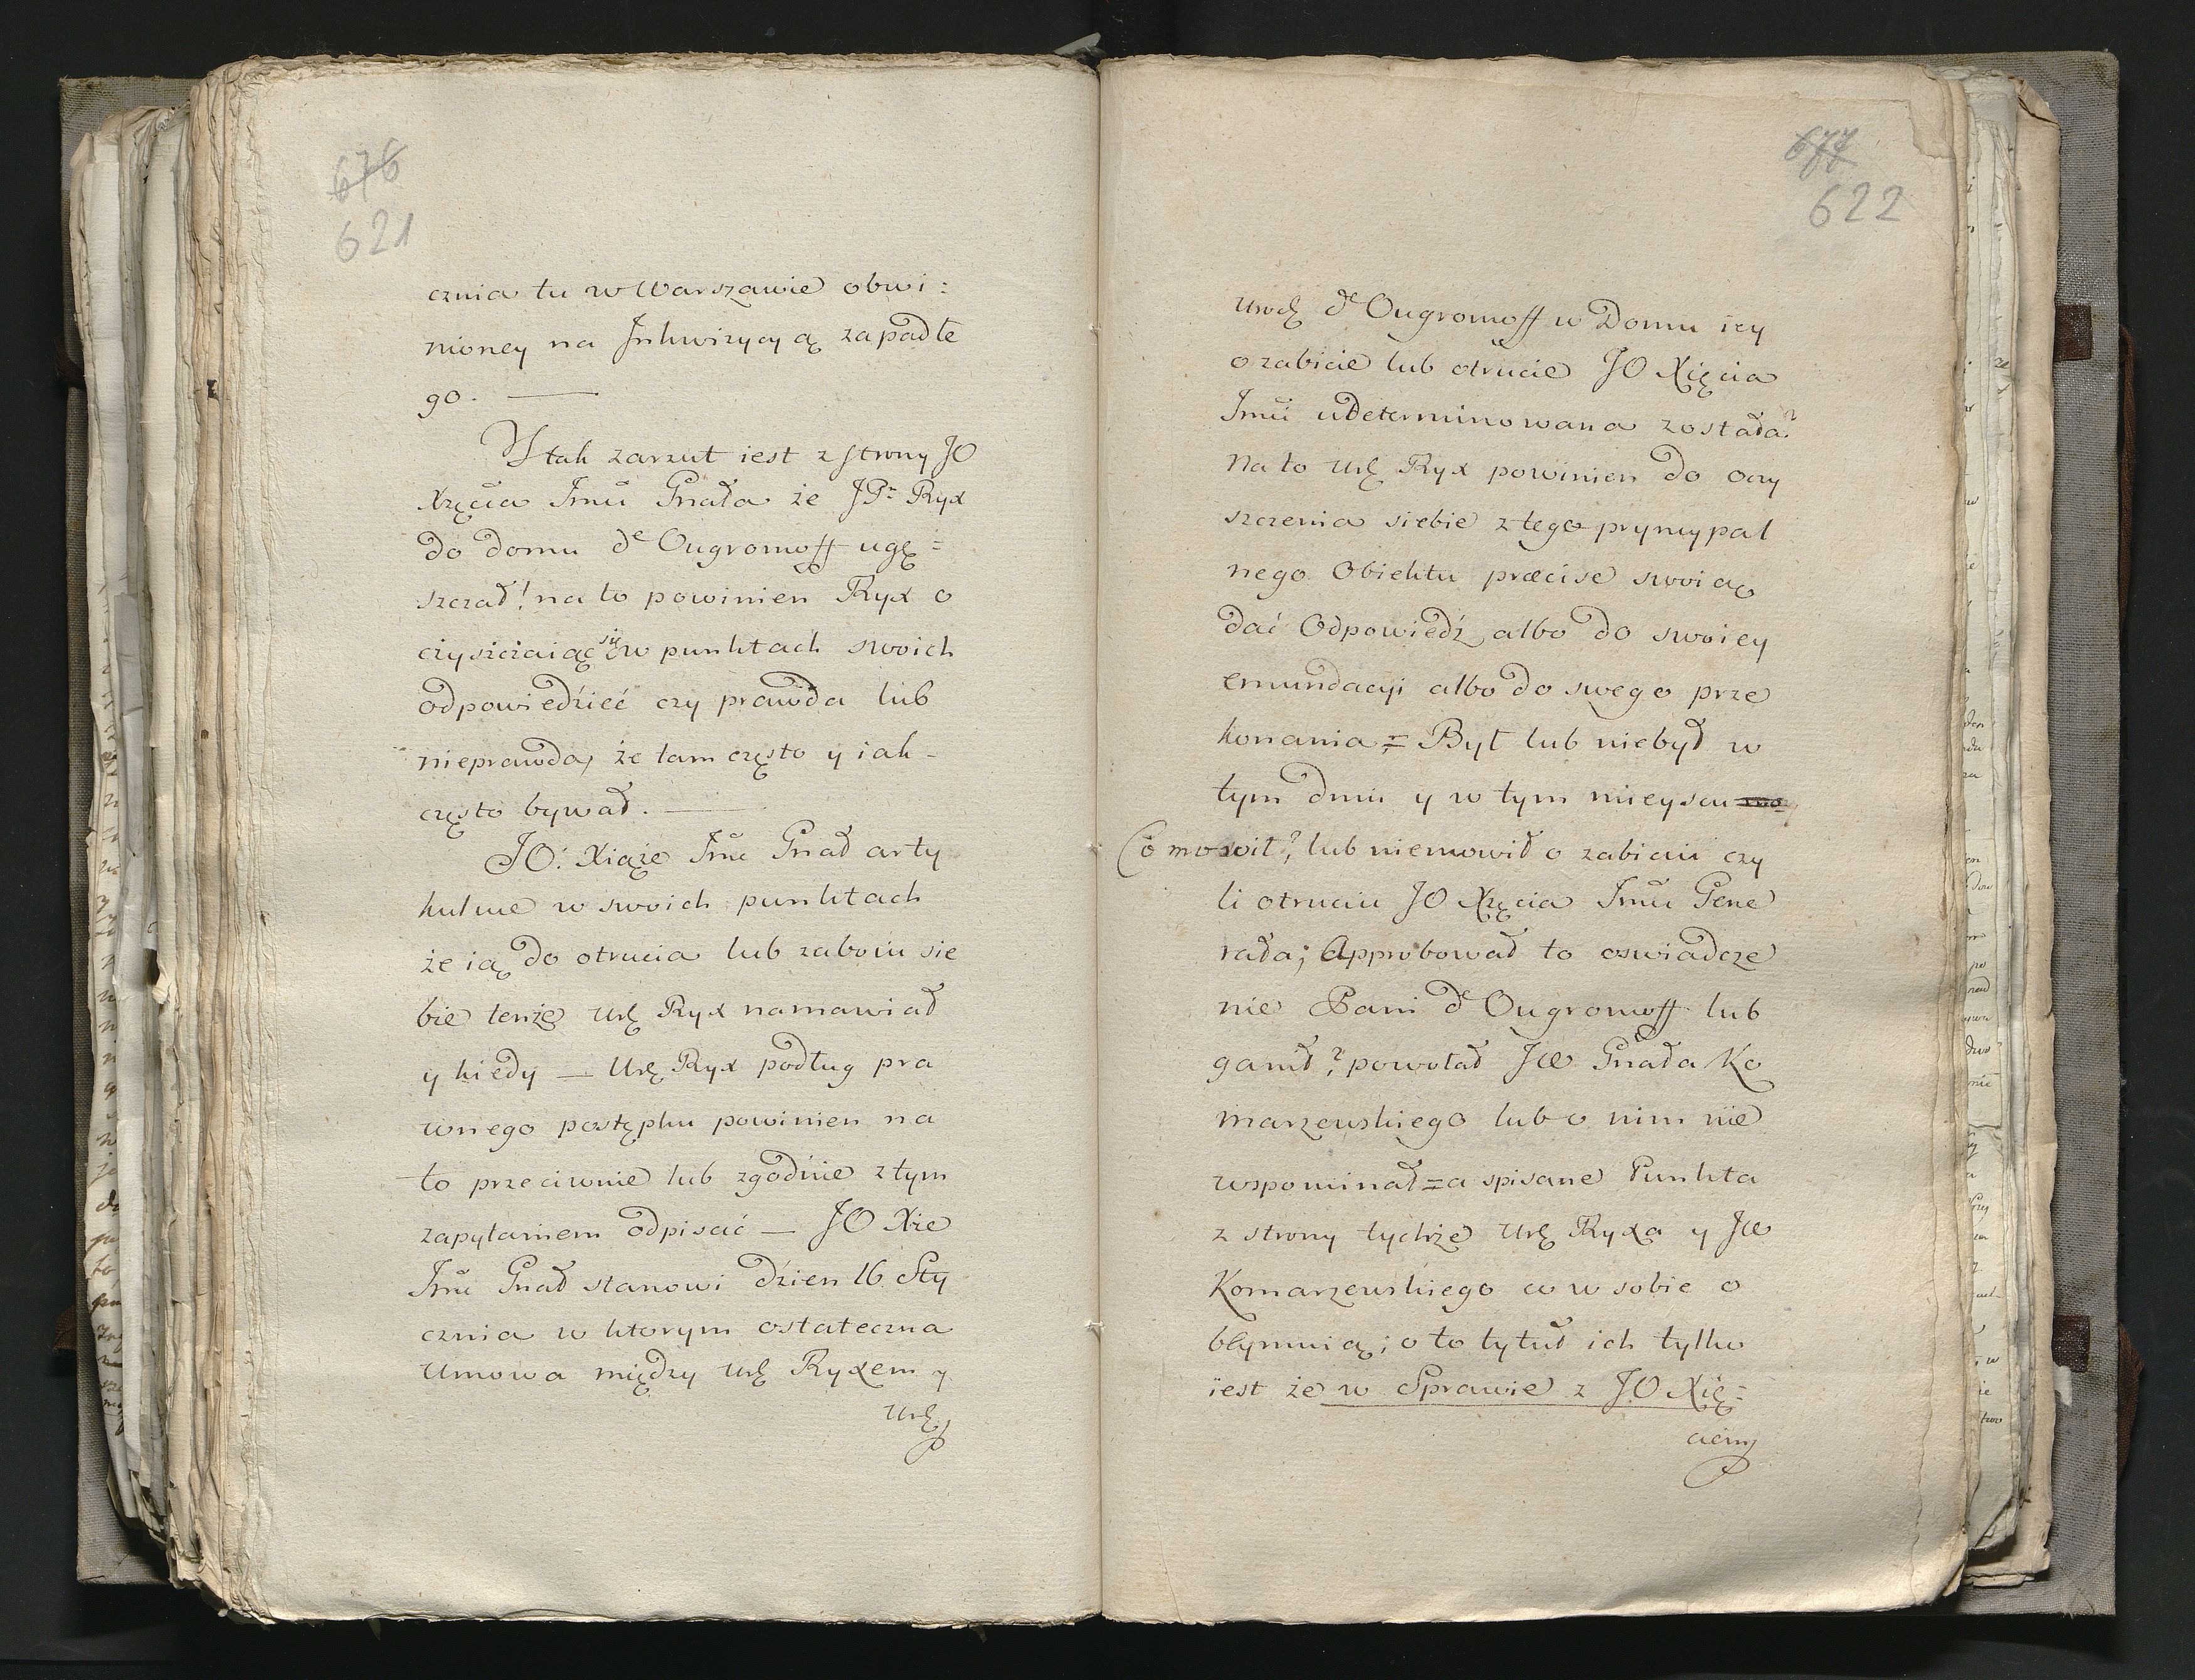 676
621
cznia tu w Warszawie obwi:
nioney na Inkwizycyą zapadłe
go.
Y tak zarzut iest z strony JO
Xzęcia Jmći Gnała że JP: Ryx
do domu de Ougromoff uczę=
szczał! na to powinien Ryx o
czyszczaiąc się w punktach swoich
odpowiedzieć czy prawda lub
nieprawda, że tam często y iak-
często bywał.
JO: Xiąże Jmć Gnał arty
kuluie w swoich punktach
że ią do otrucia lub zaboiu sie
bie tenże Urę Ryx namawiał
y kiedy — Urę Ryx podług pra
wnego postępku powinien na
to przeciwnie lub zgodnie z tym
zapytaniem odpisać — JO Xże
Jmć Gnał stanowi dzien 16 Sty
cznia w ktorym ostateczna
Umowa między Urę Ryxem y
Urę
677
622
Urodę de Ougromoff w Domu iey
o zabicie lub otrucie JO Xięcia
Jmći udeterminowana została?
Na to Urę Ryx powinien do oczy
szczenia siebie z tego pryncypal
nego Obiektu præcise swoią
dać Odpowiedź, albo do swoiey
emundacyi albo do swego prze
konania = Był lub niebył w
tym dniu y w tym mieyscu
Co mowił?, lub niemowił o zabiciu czy
li otruciu JO Xzęcia Jmći Gene
rała; Approbował to oswiadcze
nie Pani de Ougromoff lub
ganił? powołał JW Gnała Ko
marzewskiego lub o nim nie
wspominał = a spisane Punkta
z strony tychże Urę Ryxa y JW
Komarzewskiego co w sobie o
błymuią; o to tytuł ich tylko
iest że w Sprawie z JO Xię=
ciem